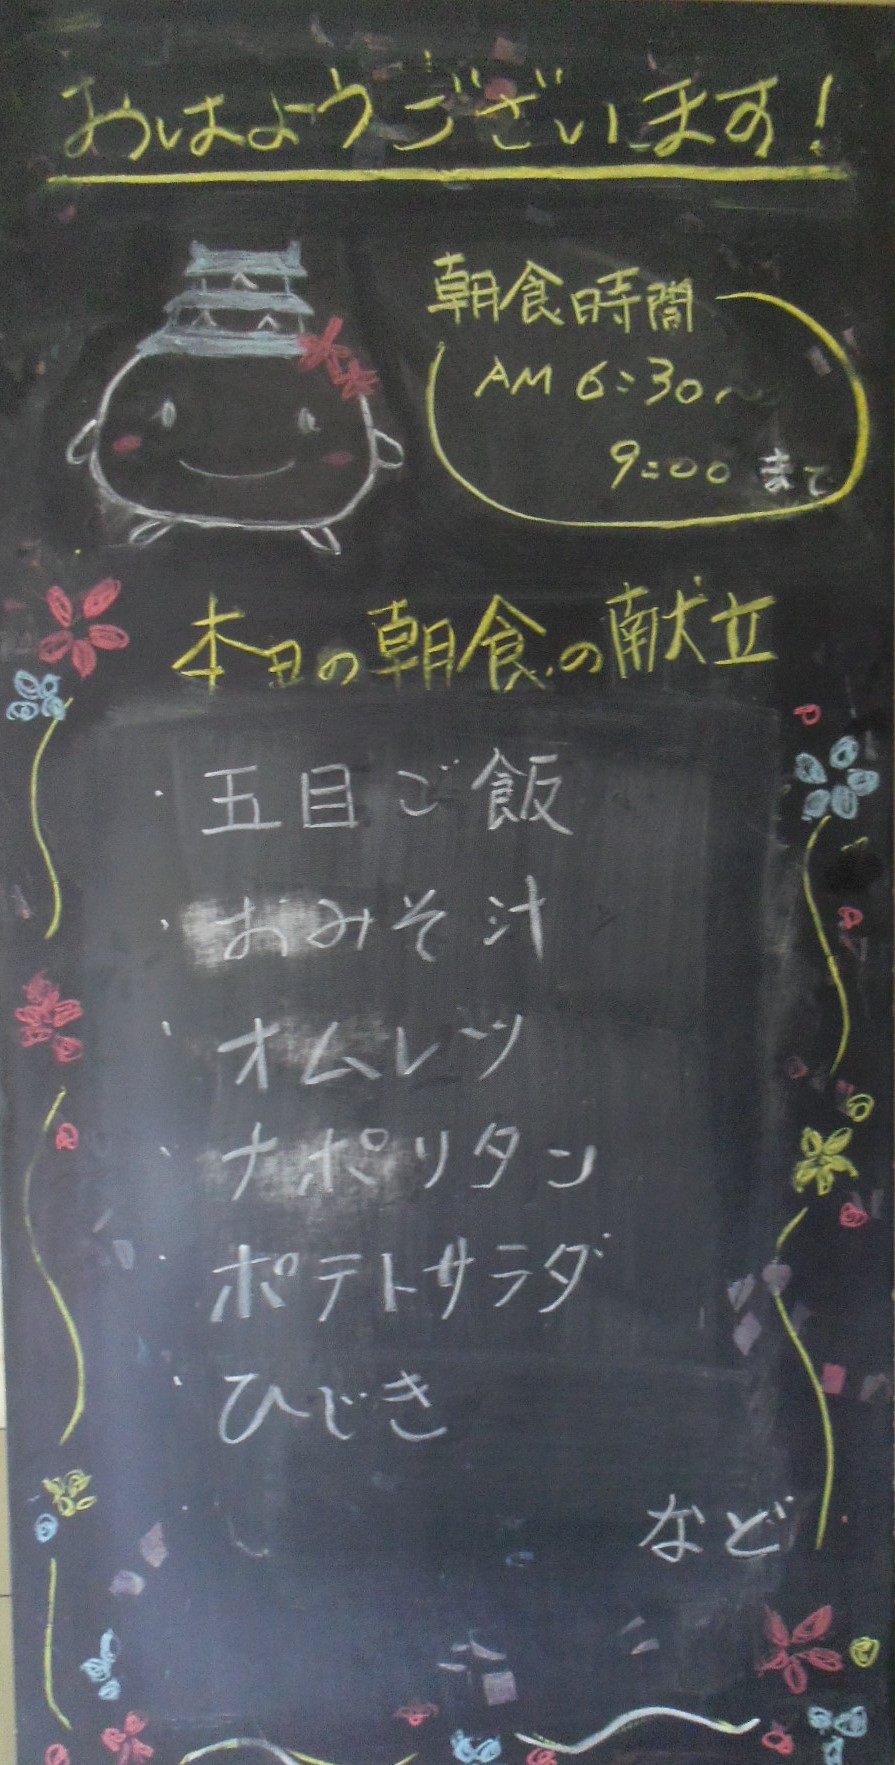 おはようございます!
朝食時間
AM 6:30〜
9:00 まで
本日の朝食の献立
・五目ご飯
・おみそ汁
・オムレツ
・ナポリタン
・ポテトサラダ
・ひじき
など